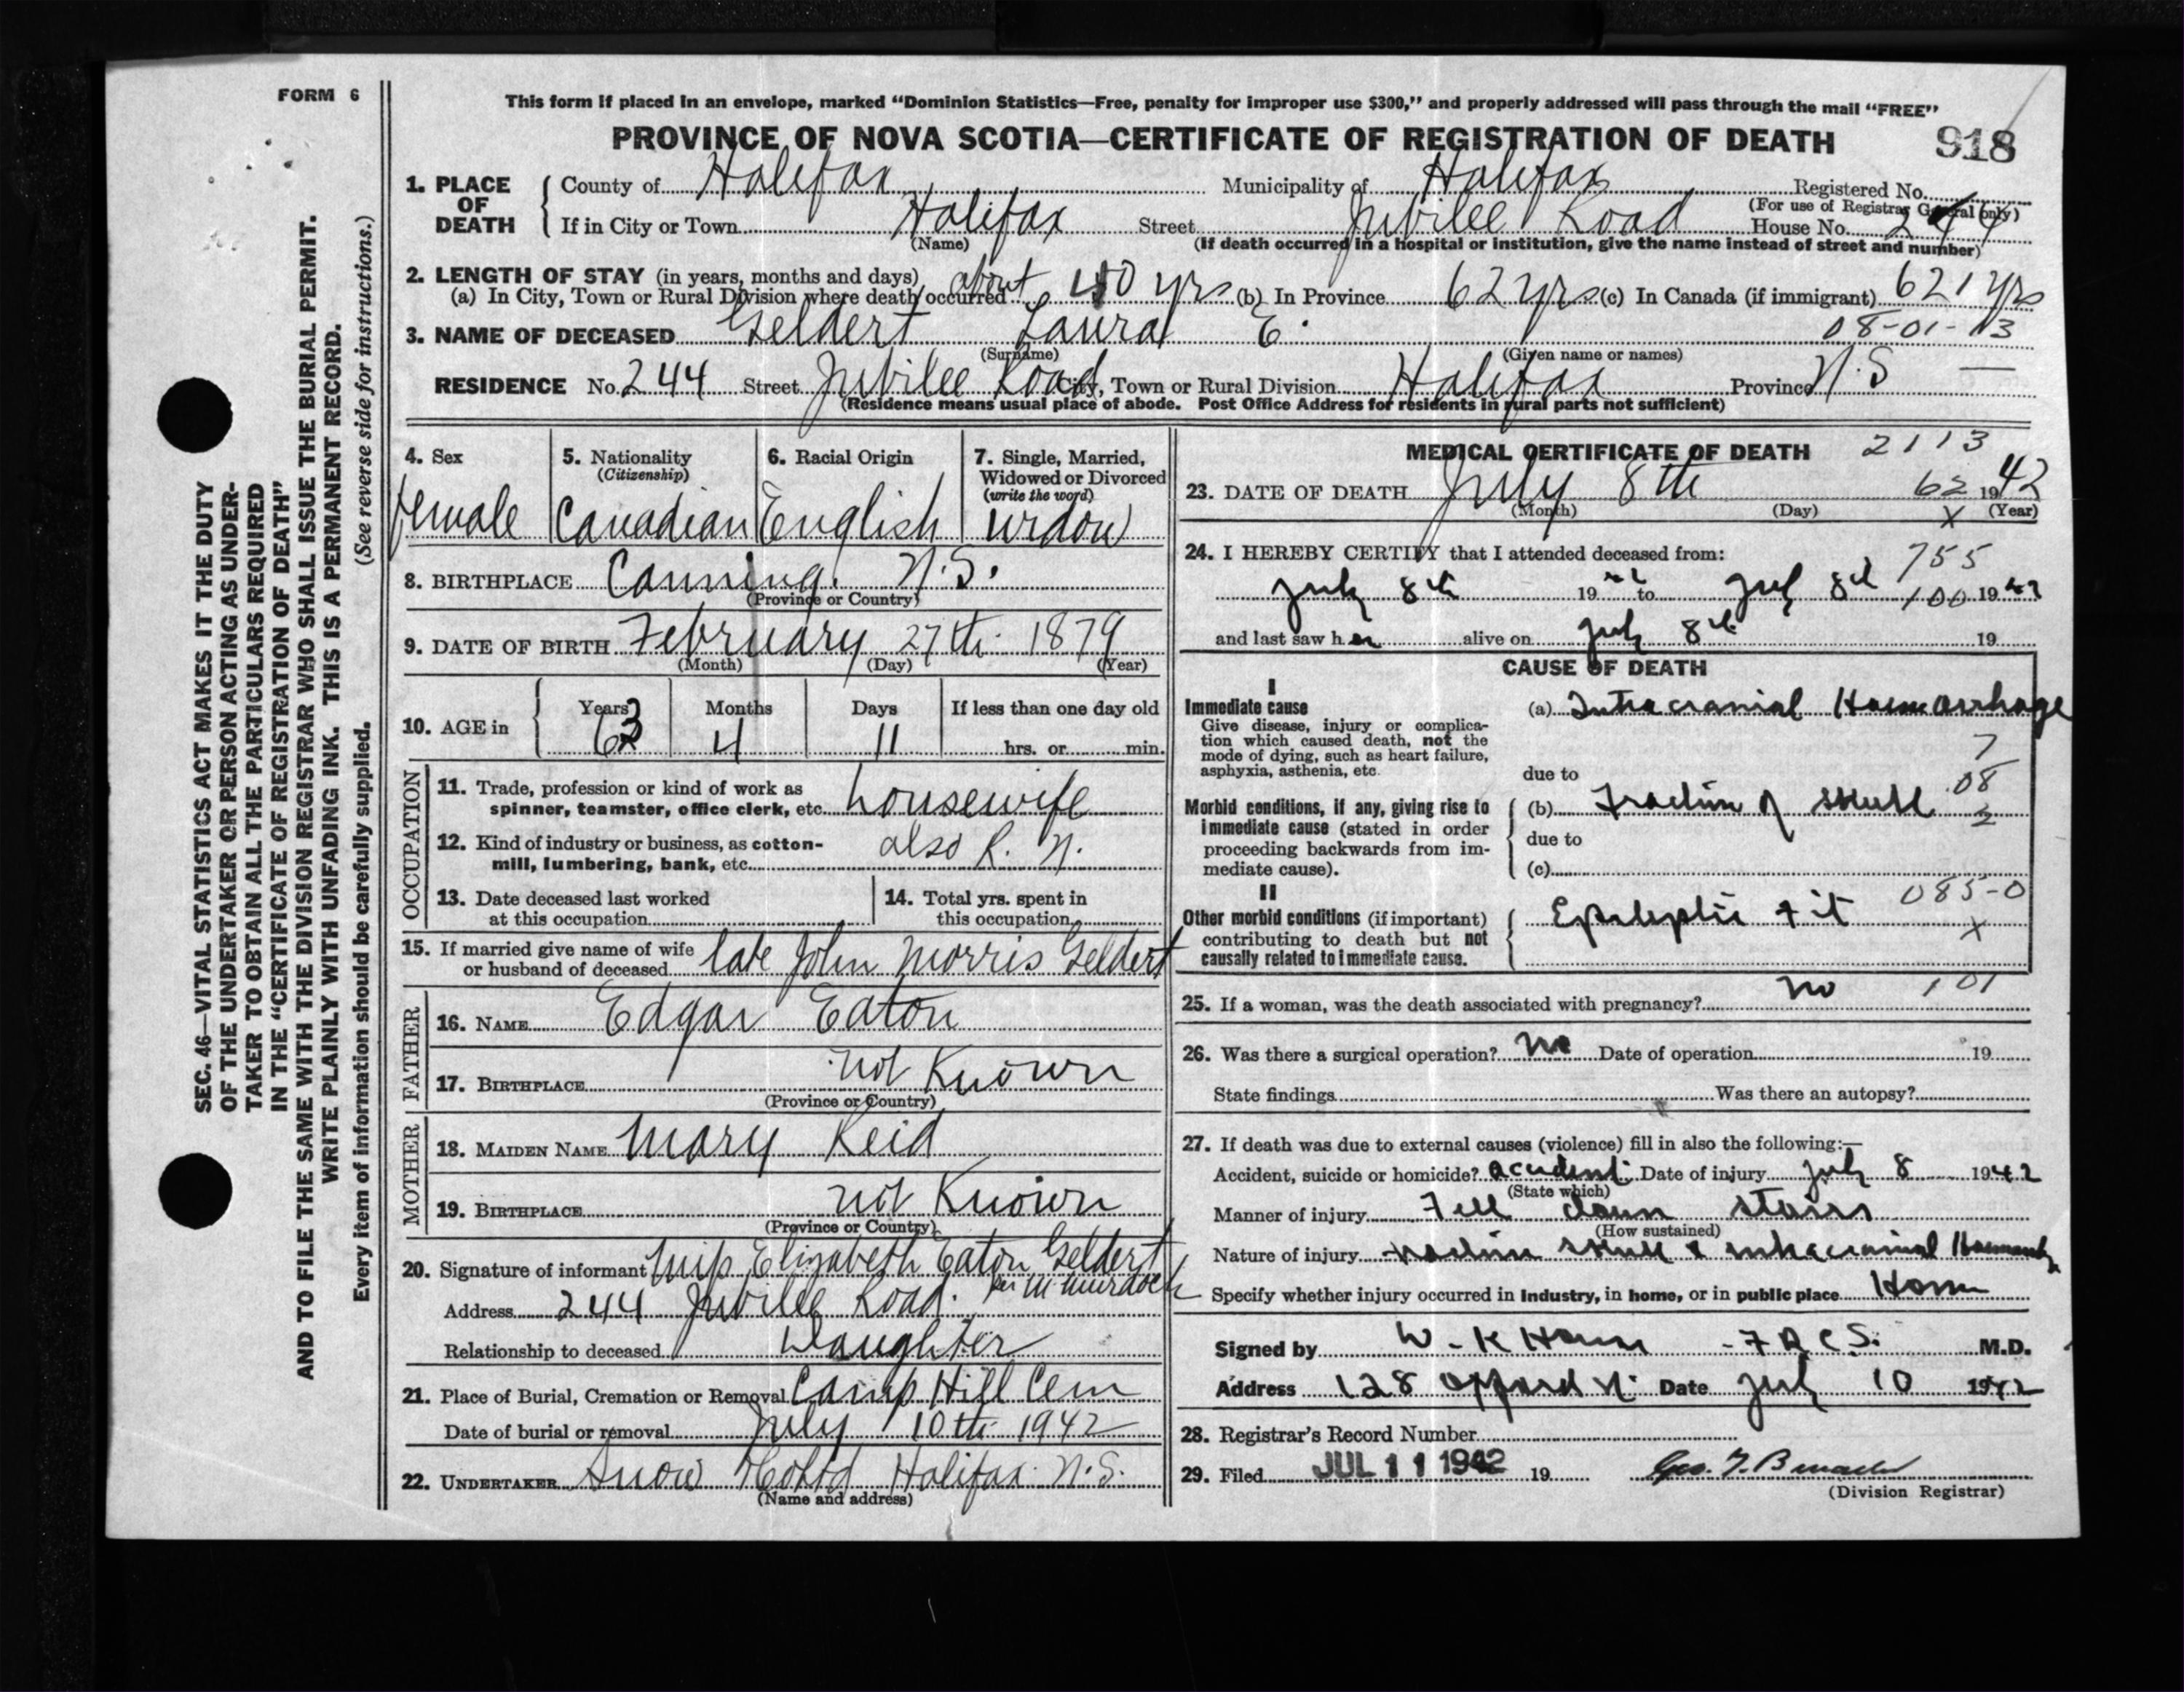 FORM 6
This form if placed in an envelope, marked “Dominion Statistics—Free, penalty for improper use $300,” and properly addressed will pass through the mail “FREE”
PROVINCE OF NOVA SCOTIA—CERTIFICATE OF REGISTRATION OF DEATH 918
1. PLACE OF DEATH
County of Halifax Municipality of Halifax Registered No.
(For use of Registrar General only)
If in City or Town Halifax Street Jubilee Road House No. 244
(Name) (If death occurred in a hospital or institution, give the name instead of street and number)
2. LENGTH OF STAY (in years, months and days)
(a) In City, Town or Rural Division where death occurred about 40 yrs (b) In Province 62 yrs (c) In Canada (if immigrant) 62 yrs
3. NAME OF DECEASED Geldert Laura E. 08-01-13
(Surname) (Given name or names)
RESIDENCE No. 244 Street Jubilee Road City, Town or Rural Division Halifax Province N.S
(Residence means usual place of abode. Post Office Address for residents in rural parts not sufficient)
4. Sex
female
5. Nationality
(Citizenship)
Canadian
6. Racial Origin
English
7. Single, Married,
Widowed or Divorced
(write the word)
widow
8. BIRTHPLACE Canning. N.S.
(Province or Country)
9. DATE OF BIRTH February 27th 1879
(Month) (Day) (Year)
10. AGE in
Years Months Days If less than one day old
63 4 11 hrs. or min.
OCCUPATION
11. Trade, profession or kind of work as
spinner, teamster, office clerk, etc. housewife
12. Kind of industry or business, as cotton-
mill, lumbering, bank, etc. also R. N.
13. Date deceased last worked
at this occupation
14. Total yrs. spent in
this occupation
15. If married give name of wife
or husband of deceased late John Morris Geldert
FATHER
16. NAME Edgar Eaton
17. BIRTHPLACE not Known
(Province or Country)
MOTHER
18. MAIDEN NAME Mary Reid
19. BIRTHPLACE not Known
(Province or Country)
20. Signature of informant Miss Elizabeth Eaton Geldert
per M Murdoch
Address 244 Jubilee Road.
Relationship to deceased Daughter
21. Place of Burial, Cremation or Removal Camp Hill Cem
Date of burial or removal July 10th 1942
22. UNDERTAKER Snow & Co Ltd Halifax N.S.
(Name and address)
MEDICAL CERTIFICATE OF DEATH 2113
23. DATE OF DEATH July 8th 62 1942
(Month) (Day) x (Year)
24. I HEREBY CERTIFY that I attended deceased from:
755
July 8th 1942 to July 8th 100 1942
and last saw her alive on July 8th 19
CAUSE OF DEATH
I
Immediate cause
Give disease, injury or complica-
tion which caused death, not the
mode of dying, such as heart failure,
asphyxia, asthenia, etc.
(a) Intracranial Haemorrhage
7
due to
08
Morbid conditions, if any, giving rise to
immediate cause (stated in order
proceeding backwards from im-
mediate cause).
(b) Fracture of skull
2
due to
(c)
II
Other morbid conditions (if important)
contributing to death but not
causally related to immediate cause.
085-0
Epileptic fit
x
25. If a woman, was the death associated with pregnancy? no 101
26. Was there a surgical operation? No Date of operation 19
State findings Was there an autopsy?
27. If death was due to external causes (violence) fill in also the following:—
Accident, suicide or homicide? accident. Date of injury July 8 1942
(State which)
Manner of injury Fell down stairs
(How sustained)
Nature of injury fracture skull & intracranial Haemorrhage
Specify whether injury occurred in industry, in home, or in public place Home
Signed by W. K House - F A C S. M.D.
Address 128 Oxford St. Date July 10 1942
28. Registrar's Record Number
29. Filed JUL 11 1942 19
(Division Registrar)
SEC. 46—VITAL STATISTICS ACT MAKES IT THE DUTY
OF THE UNDERTAKER OR PERSON ACTING AS UNDER-
TAKER TO OBTAIN ALL THE PARTICULARS REQUIRED
IN THE “CERTIFICATE OF REGISTRATION OF DEATH”
AND TO FILE THE SAME WITH THE DIVISION REGISTRAR WHO SHALL ISSUE THE BURIAL PERMIT.
WRITE PLAINLY WITH UNFADING INK. THIS IS A PERMANENT RECORD.
Every item of information should be carefully supplied. (See reverse side for instructions.)